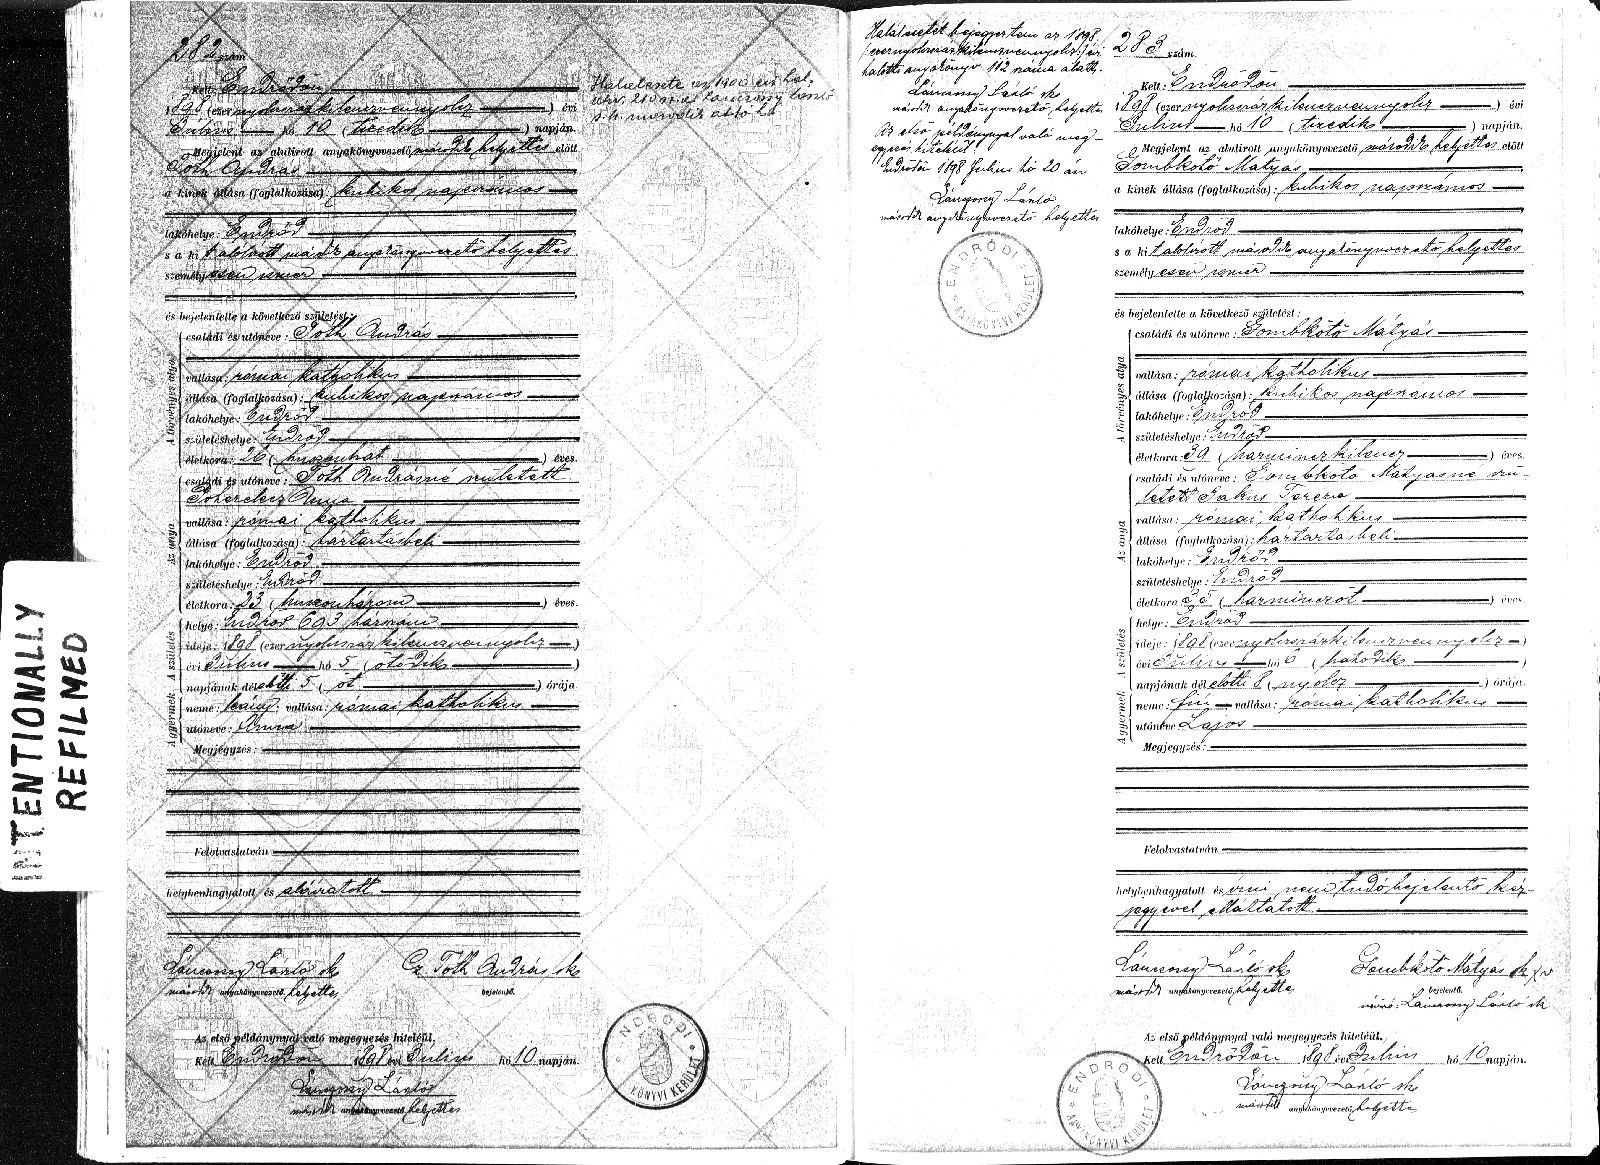 INTENTIONALLY
REFILMED
282 szám
Kelt Endrődön
1898 (ezer nyolcszázkilenczvennyolcz) évi
Julius hó 10 (tizedik) napján.
Megjelent az alulirott anyakönyvvezető második helyettes előtt
Tóth András
a kinek állása (foglalkozása): kubikos napszámos
lakóhelye: Endrőd
s a kit alólirott másodk anyakönyvvezető helyettes
személyesen ismer
és bejelentette a következő születést:
A törvényes atya
családi és utóneve: Tóth András
vallása: római katholikus
állása (foglalkozása): kubikos napszámos
lakóhelye: Endrőd
születéshelye: Endrőd
életkora: 26 (huszonhat) éves.
Az anya
családi és utóneve: Tóth Andrásné született
Anna
vallása: római katholikus
állása (foglalkozása): háztartásbeli
lakóhelye: Endrőd
születéshelye: Endrőd
életkora: 23 (huszonhárom) éves.
A gyermek A születés
helye: Endrőd 693 házszám
ideje: 1898 (ezer nyolcszázkilenczvennyolcz)
évi Julius hó 5 (ötödik)
napjának délelőtti 5 (öt) órája
neme: leány, vallása: római katholikus
utóneve: Anna
Megjegyzés:
Felolvastatván
helybenhagyatott és aláiratott
Lánczosy László sk
másodk anyakönyvvezető, helyettes
Cz Tóth András sk
bejelentő.
Az első példánynyal való megegyezés hiteléül.
Kelt Endrődön 1898 évi Julius hó 10 napján.
Lánczosy László
másodk anyakönyvvezető helyettes
ENDRŐDI KÖNYVI KERÜLET
Halálesetét bejegyeztem az 1898
(ezernyolcszázkilenczvennyolcz) évi
halotti anyakönyv 112 száma alatt.
Lánczosy László sk
második anyakönyvvezető helyettes
Az első példánynyal való meg-
egyezés hiteléül
Endrődön 1898 Julius hó 20 án
Lánczosy László
másodk anyakönyvvezető helyettes
ENDRŐDI ANYAKÖNYVI KERÜLET
283 szám.
Kelt Endrődön
1898 (ezer nyolcszázkilenczvennyolcz) évi
Julius hó 10 (tizedik) napján.
Megjelent az alulirott anyakönyvvezető másodk helyettes előtt
Gombkötő Mátyás
a kinek állása (foglalkozása): kubikos napszámos
lakóhelye: Endrőd
s a kit alólirott másodk anyakönyvvezető helyettes
személyesen ismer
és bejelentette a következő születést:
A törvényes atya
családi és utóneve: Gombkötő Mátyás
vallása: római katholikus
állása (foglalkozása): kubikos napszámos
lakóhelye: Endrőd
születéshelye: Endrőd
életkora: 39 (harminczkilencz) éves.
Az anya
családi és utóneve: Gombkötő Mátyásné szü-
letett Jakus Terézia
vallása: római katholikus
állása (foglalkozása): háztartásbeli
lakóhelye: Endrőd
születéshelye: Endrőd
életkora 35 (harminczöt) éves
A gyermek A születés
helye: Endrőd
ideje: 1898 (ezer nyolcszázkilenczvennyolcz)
évi Julius hó 6 (hatodik)
napjának délelőtti 8 (nyolcz) órája.
neme: fiu vallása: római katholikus
utóneve Lajos
Megjegyzés:
Felolvastatván
helybenhagyatott és irni nem tudó bejelentő kéz-
jegyével elláttatott
Lánczosy László sk
másodk anyakönyvvezető, helyettes
Gombkötő Mátyás sk x v
bejelentő.
névíró: Lánczosy László sk
Az első példánynyal való megegyezés hiteléül.
Kelt Endrődön 1898 évi Julius hó 10 napján.
Lánczosy László sk
másodk anyakönyvvezető helyettes
ENDRŐDI ANYAKÖNYVI KERÜLET